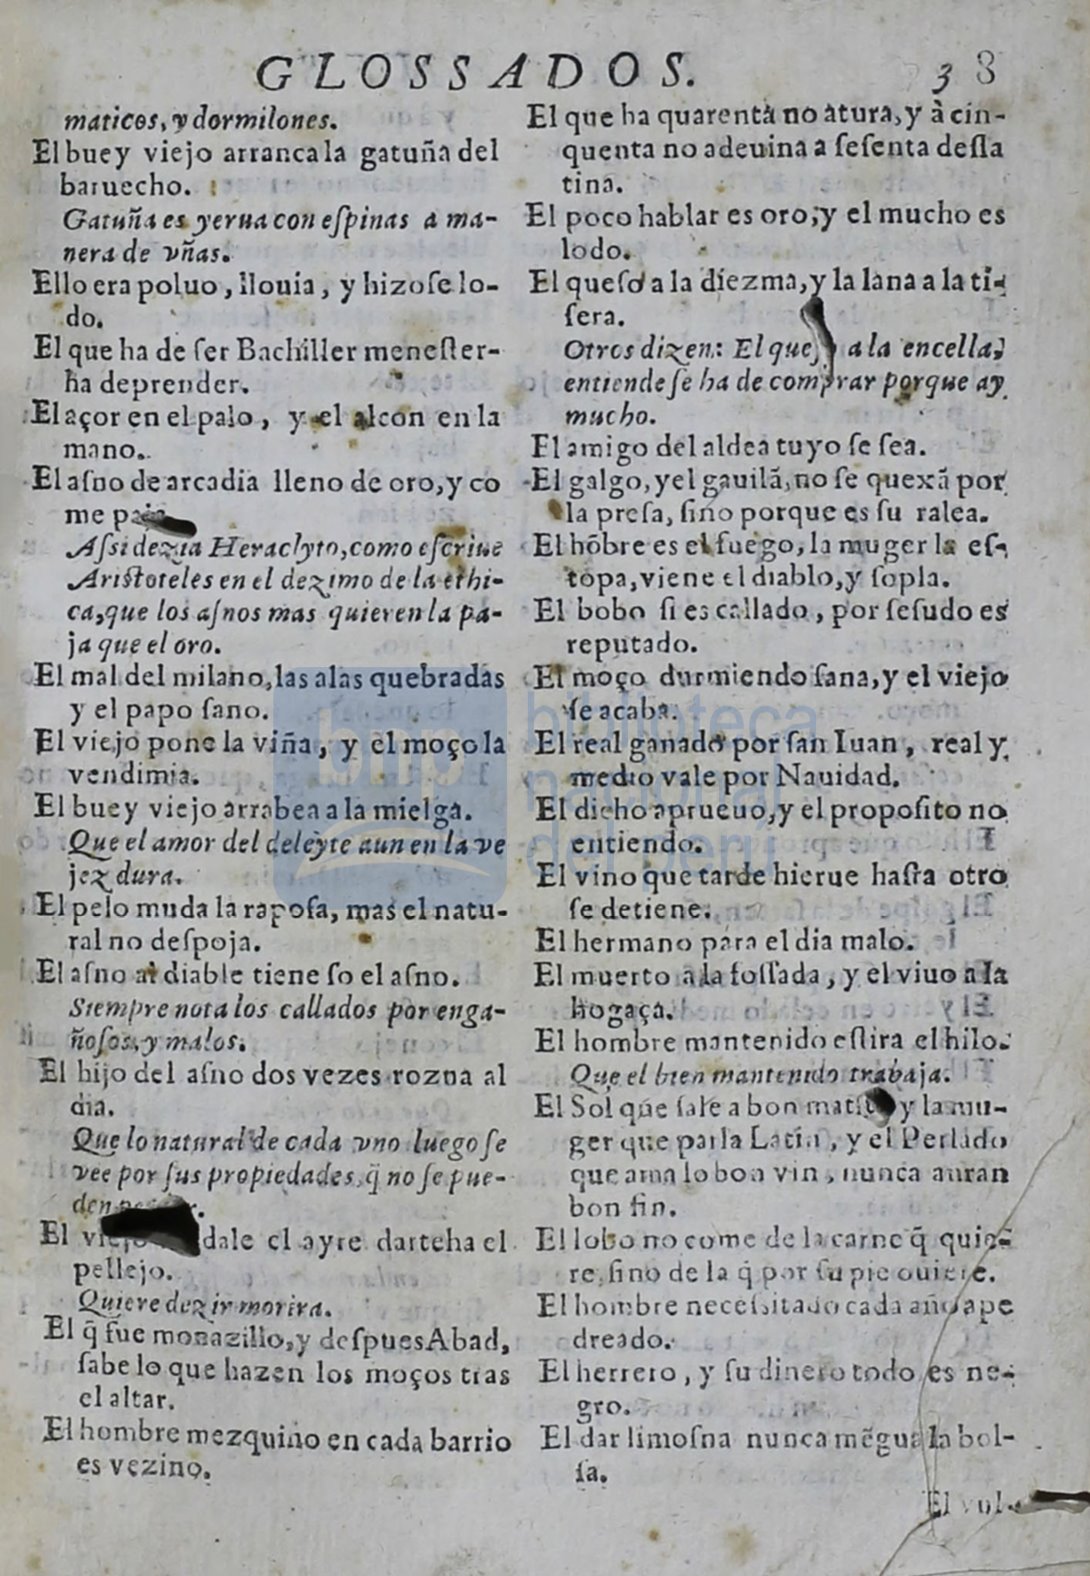 GLOSSADOS. 38
maticos, y dormilones.
El buey viejo arranca la gatuña del
baruecho.
Gatuña es yerua con eſpinas a ma-
nera de vñas.
Ello era poluo, llouia, y hizoſe lo-
do.
El que ha de ſer Bachiller meneſter-
ha deprender.
El açor en el palo, y el alcon en la
mano.
El aſno de arcadia lleno de oro, y co
me
Aſsi dezia Heraclyto, como eſcriue
Ariſtoteles en el dezimo de la ethi-
ca, que los aſnos mas quieren la pa-
ja que el oro.
El mal del milano, las alas quebradas
y el papo ſano.
El viejo pone la viña, y el moço la
vendimia.
El buey viejo arrabea a la mielga.
Que el amor del deleyte aun en la ve
jez dura.
El pelo muda la rapoſa, mas el natu-
ral no deſpoja.
El aſno al diable tiene ſo el aſno.
Siempre nota los callados por enga-
ñoſos, y malos.
El hijo del aſno dos vezes rozna al
dia.
Que lo natural de cada vno luego ſe
vee por ſus propiedades, q̃ no ſe pue-
den
El dale el ayre darteha el
pellejo.
Quiere dezir morira.
El q̃ fue monazillo, y deſpues Abad,
ſabe lo que hazen los moços tras
el altar.
El hombre mezquino en cada barrio
es vezino.
El que ha quarenta no atura, y à cin-
quenta no adeuina a ſeſenta deſla
tina.
El poco hablar es oro, y el mucho es
lodo.
El queſo a la diezma, y la lana a la ti-
ſera.
Otros dizen: El a la encella,
entiende ſe ha de comprar porque ay
mucho.
El amigo del aldea tuyo ſe ſea.
El galgo, y el gauilã, no ſe quexã por
la preſa, ſino porque es ſu ralea.
El hõbre es el fuego, la muger la eſ-
topa, viene el diablo, y ſopla.
El bobo ſi es callado, por ſeſudo es
reputado.
El moço durmiendo ſana, y el viejo
ſe acaba.
El real ganado por ſan Iuan, real y
medio vale por Nauidad.
El dicho aprueuo, y el propoſito no
entiendo.
El vino que tarde hierue haſta otro
ſe detiene.
El hermano para el dia malo.
El muerto a la foſſada, y el viuo a la
hogaça.
El hombre mantenido eſtira el hilo.
Que el bien mantenido trabaja.
El Sol que ſale a bon y la mu-
ger que parla Latin, y el Perlado
que ama lo boa vin, nunca auran
bon fin.
El lobo no come de la carne q̃ quie-
re, ſino de la q̃ por ſu pie ouiere.
El hombre neceſsitado cada año ape
dreado.
El herrero, y ſu dinero todo es ne-
gro.
El dar limoſna nunca mẽgua la bol-
ſa.
El vul-
bnp biblioteca nacional del perú